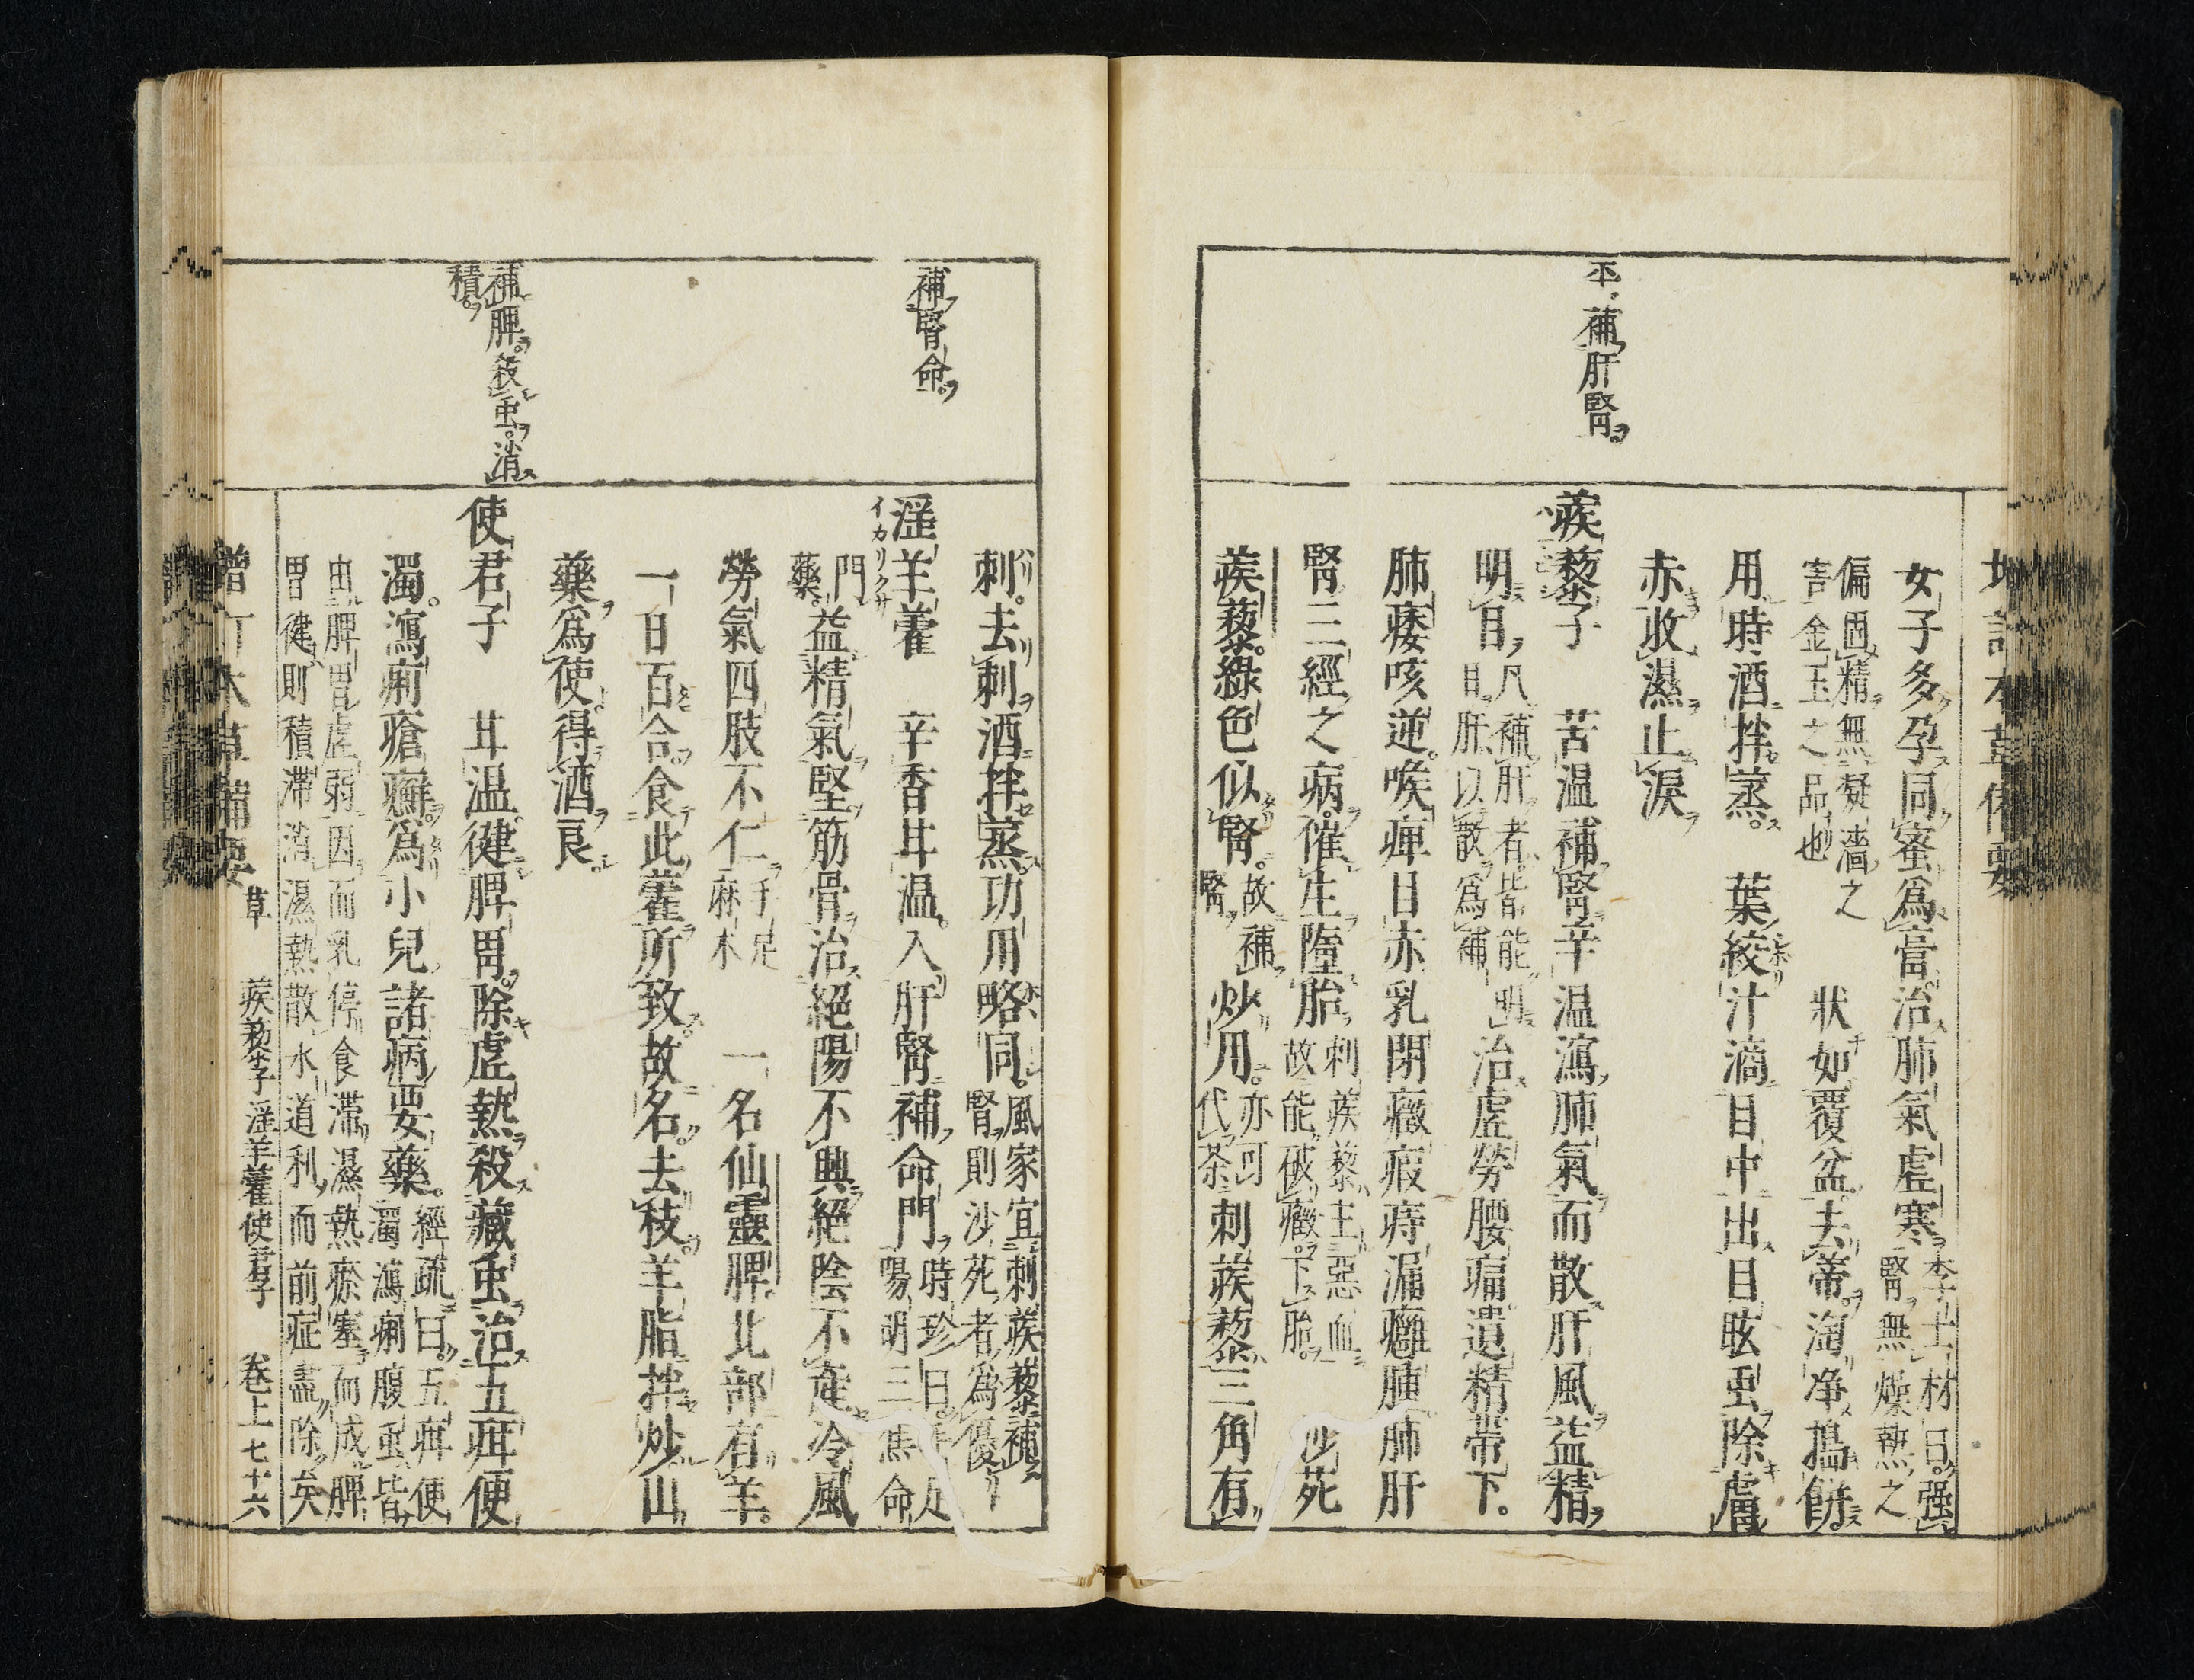 増訂本草備要
女子多孕同蜜爲膏治肺氣虚寒李士材曰强
腎無燥熱之
偏固精無凝濇之
害金玉之品也 狀如覆盆去蒂淘净搗餅
用時酒拌蒸 葉絞汁滴目中出目眩虫除膚
赤收濕止淚
平補肝腎
蒺藜子 苦温補腎辛温瀉肺氣而散肝風益精
明目凡補肝者皆能明
目肝以散爲補治虚勞腰痛遺精帶下
肺痿咳逆喉痺目赤乳閉癥瘕痔漏癰腫肺肝
腎三經之病催生墮胎刺蒺藜主惡血
故能破癥下胎 沙苑
蒺藜綠色似腎故補
腎炒用亦可
代茶刺蒺藜三角有
刺去刺酒拌蒸功用略同風家宜刺蒺藜補
腎則沙苑者爲優
補腎命
淫羊藿 辛香甘温入肝腎補命門時珍曰手足
陽明三焦命
イカリクサ
門
藥益精氣堅筋骨治絕陽不興絕陰不產冷風
勞氣四肢不仁手足
麻木 一名仙靈脾北部有羊
一日百合食此藿所致故名去枝羊脂拌炒山
藥爲使得酒良
補脾殺虫消
積
使君子 甘温健脾胃除虚熱殺藏虫治五疳便
濁瀉痢瘡癬爲小兒諸病要藥經疏曰五疳便
濁瀉痢腹虫皆
由脾胃虚弱因而乳停食滯濕熱瘀塞而成脾
胃健則積滯消濕熱散水道利而前症盡除矣
増訂本草備要 草 蒺藜子 淫羊藿 使君子 卷上 七十六